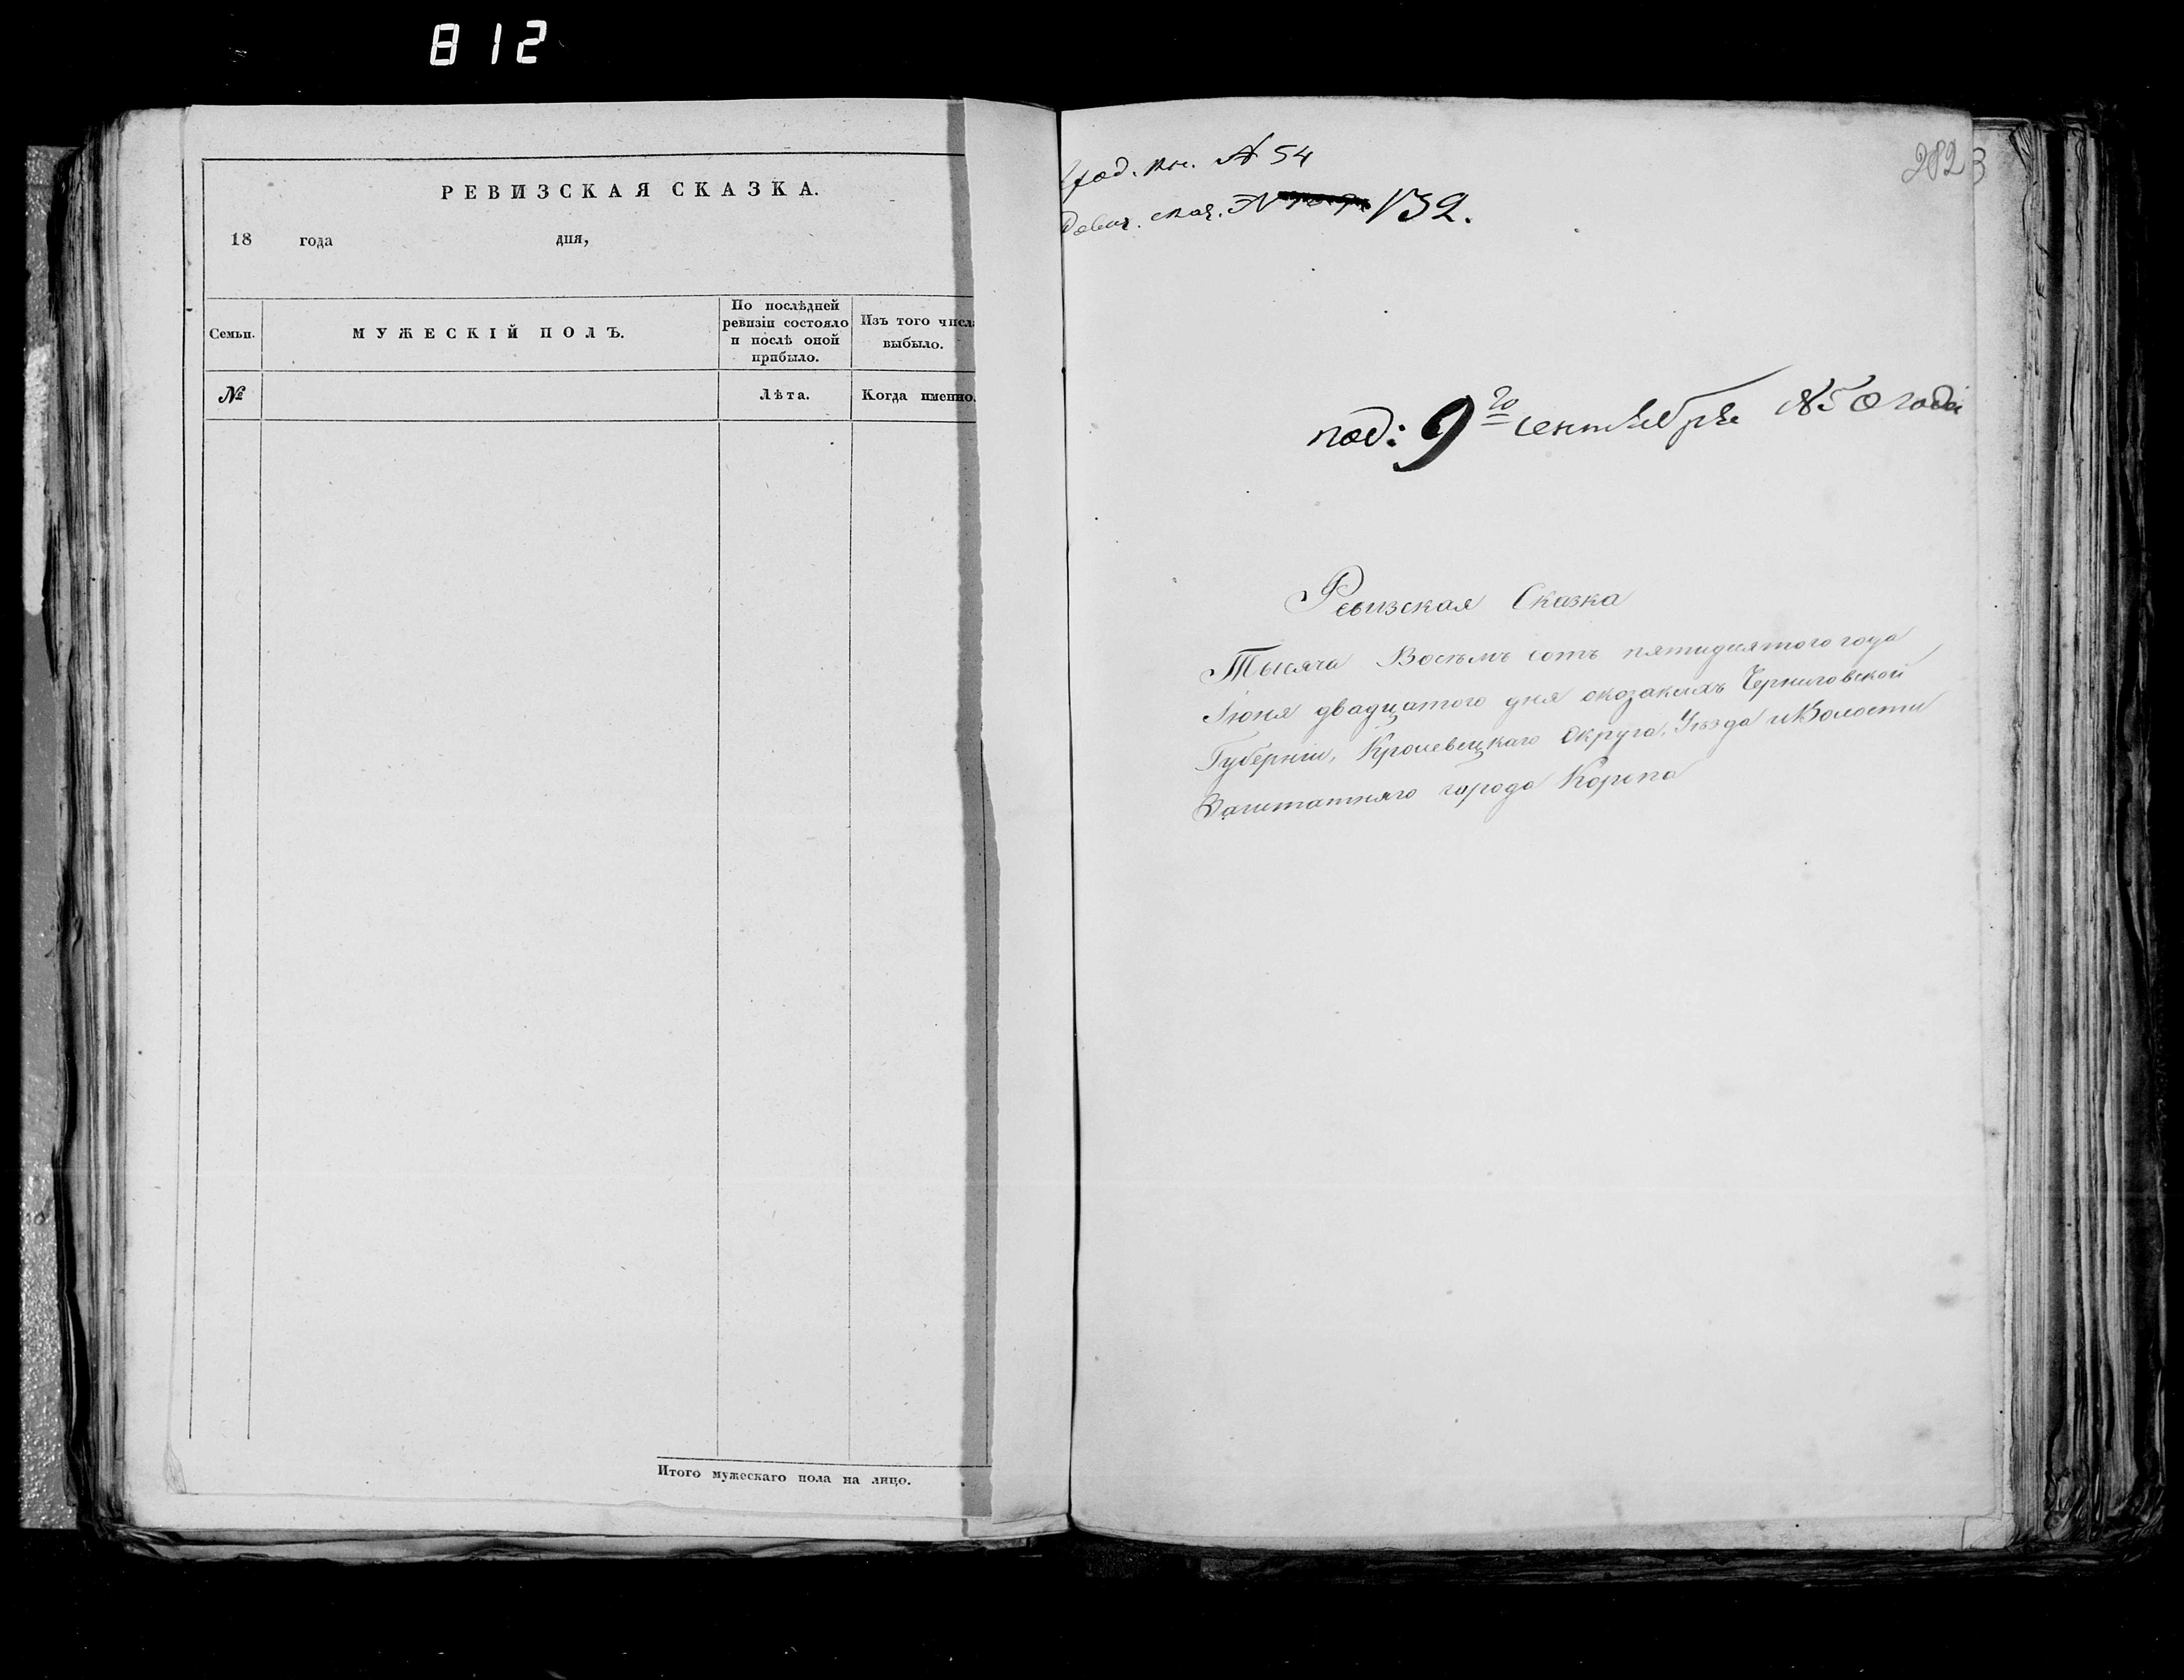 812
РЕВИЗСКАЯ СКАЗКА.
18 года дня,
Семьи.
МУЖЕСКІЙ ПОЛЪ.
По послѣдней ревизіи состояло и послѣ оной прибыло.
Изъ того числа выбыло.
№
Лѣта.
Когда именно.
Итого мужескаго пола на лицо.
№ 54
№ 132.
282
3
под: 9го сентября 1850 года
Ревизская Сказка
Тысяча Восемь сотъ пятидесятого года
Іюня двадцатого дня оказакахъ Черниговской
Губерніи, Кролевецкаго Округа, Уѣзда и Волости
Заштатняго города Коропа